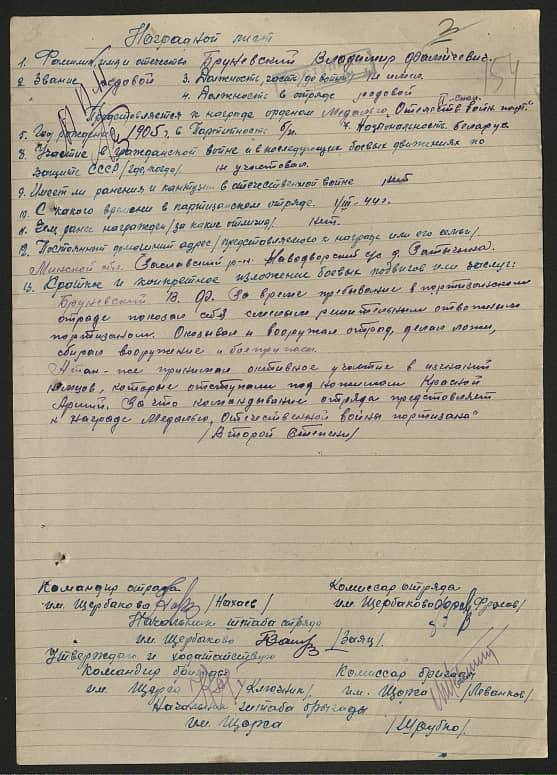 Наградной лист
2
154
1. Фамилия, имя и отчество Бруневский Владимир
2. Звание рядовой 3. Должность, часть до войны не имел.
4. Должность в отряде рядовой
II степ.
Представляется к награде орденом Медалью „Отечеств войны парт."
5. Год рождения 1905 г. 6. Партийность б/п. 7. Национальность. Беларус
8. Участие в гражданской войне и в последующих боевых движениях по
защите СССР /где, когда/ не участвовал.
9. Имеет ли ранения и контузии в отечественной войне нет
10. С какого времени в партизанском отряде. 1/III-44 г.
11. Чем ранее награжден /за какие отличия/ нет.
12. Постоянный домашний адрес /представляемого к награде или его семьи/.
Минской обл. Заславский р-н. д.
13. Краткое и конкретное изложение боевых подвигов или заслуг:
Бруневский В. За время пребывания в партизанском
отряде показал себя смелым решительным отважным
партизаном. и вооружал отряд, делал ложи,
сбирал вооружение и боеприпасы.
А так-же принимал активное участие в изгнании
немцов, которые отступали под нажимом Красной
Армии. За что командование отряда представляет
к награде Медалью, Отечественной войны партизана"
/Второй Степени/
Командир отряда Комиссар отряда
им. Щербакова /Нахаев/ им. Щербакова /Фролов/
Начальник штаба отряда
им. Щербакова /Заяц/
Утверждаю и ходатайствую
Командир бригады Комиссар бригады
им. Щорса /Ключник/ им. Щорса /Леванков/
Начальник штаба бригады
им. Щорса /Шрубко/